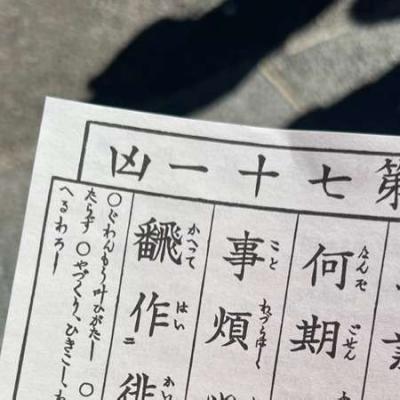 第七十一凶
何期
なんぞ ごせん
事煩
こと わづらはしく
飜作徘
かへって はい かい
○ぐわんもう叶ひがたし ○
たらず ○やづくり、ひきこしわ
へるわろし